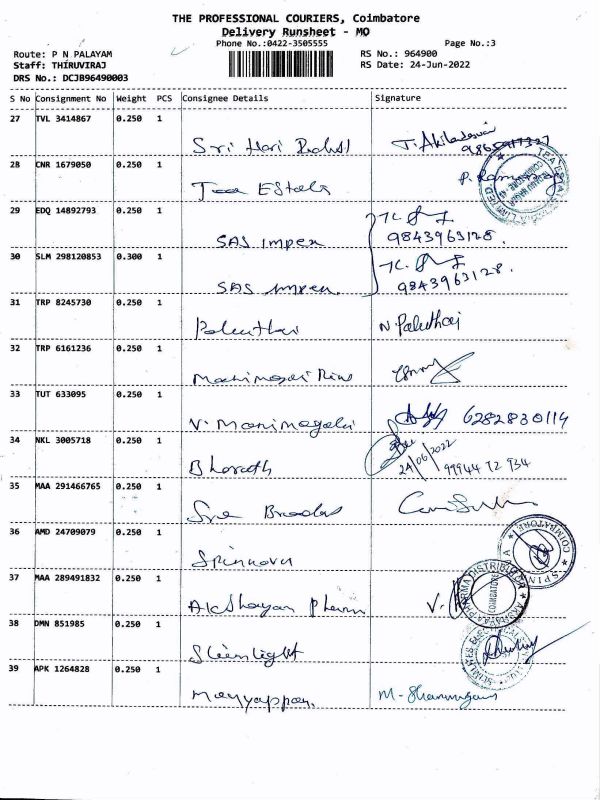 THE PROFESSIONAL COURIERS, Coimbatore
Delivery Runsheet - MO
Phone No.:0422-3505555
Page No.:3
Route: P N PALAYAM
RS No.: 964900
Staff: THIRUVIRAJ
RS Date: 24-Jun-2022
DRS No.: DCJB96490003
S No Consignment No Weight PCS Consignee Details Signature
27 TVL 3414867 0.250 1
Sri Hari
28 CNR 1679050 0.250 1
Tea Estate
29 EDQ 14892793 0.250 1
SAS Impex 9843963128.
30 SLM 298120853 0.300 1
SAS Impex 9843963128.
31 TRP 8245730 0.250 1
N. Paluthai
32 TRP 6161236 0.250 1
33 TUT 633095 0.250 1
V. Manimegalai 6282830114
34 NKL 3005718 0.250 1
Bharath 24/06/2022 99944 72 934
35 MAA 291466765 0.250 1
Sree
36 AMD 24709079 0.250 1
Spinnova
COIMBATORE
SPIN
37 MAA 289491832 0.250 1
Akshayaa Pharma V.
PHARMA DISTRIBUTOR
COIMBATORE
38 DMN 851985 0.250 1
39 APK 1264828 0.250 1
Mayyappan. M. Shanmugam